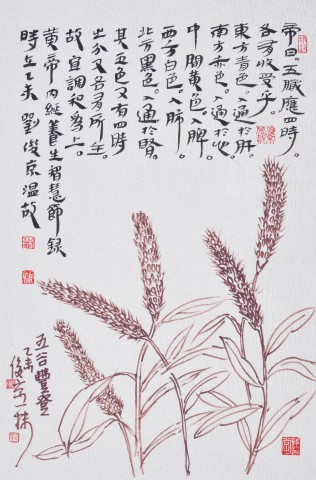 帝曰。五臟應四時。
各有收受乎。
東方青色。入通於肝。
南方赤色。入通於心。
中間黃色。入脾。
西方白色。入肺。
北方黑色。入通於腎。
其五色又有四時
之分。又各有所主。
故宜調和為上。
黃帝內經養生智慧節錄
時在乙未 劉俊京溫故
五谷豐登
乙未
俊京